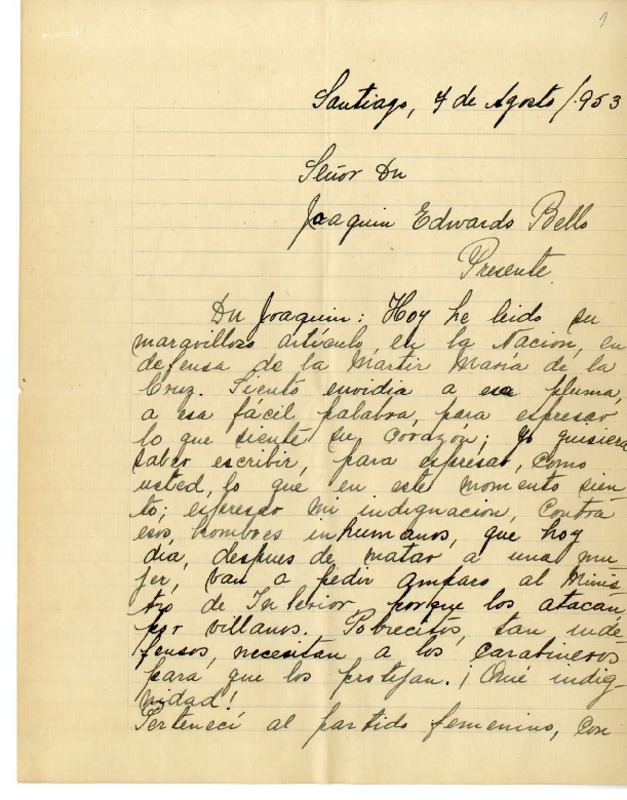 1
Santiago, 4 de Agosto/953
Señor Dn
Joaquin Edwards Bello
Presente.
Dn Joaquin: Hoy he leido su
maravilloso artículo, en la Nacion, en
defensa de la Martir María de la
Cruz. Siento envidia a esa pluma,
a esa fácil palabra, para expresar
lo que siente su corazón; yo quisiera
saber escribir, para expresar, como
usted, lo que en este momento sien
to; expresar mi indignacion, contra
esos, hombres inhumanos, que hoy
dia, despues de matar a una mu
jer, van a pedir amparo al Minis
tro de Interior, porque los atacan
por villanos. Pobrecitos, tan inde
fensos, necesitan a los carabineros
para que los protejan. ¡Qué indig
nidad!
Pertenecí al partido femenino, con